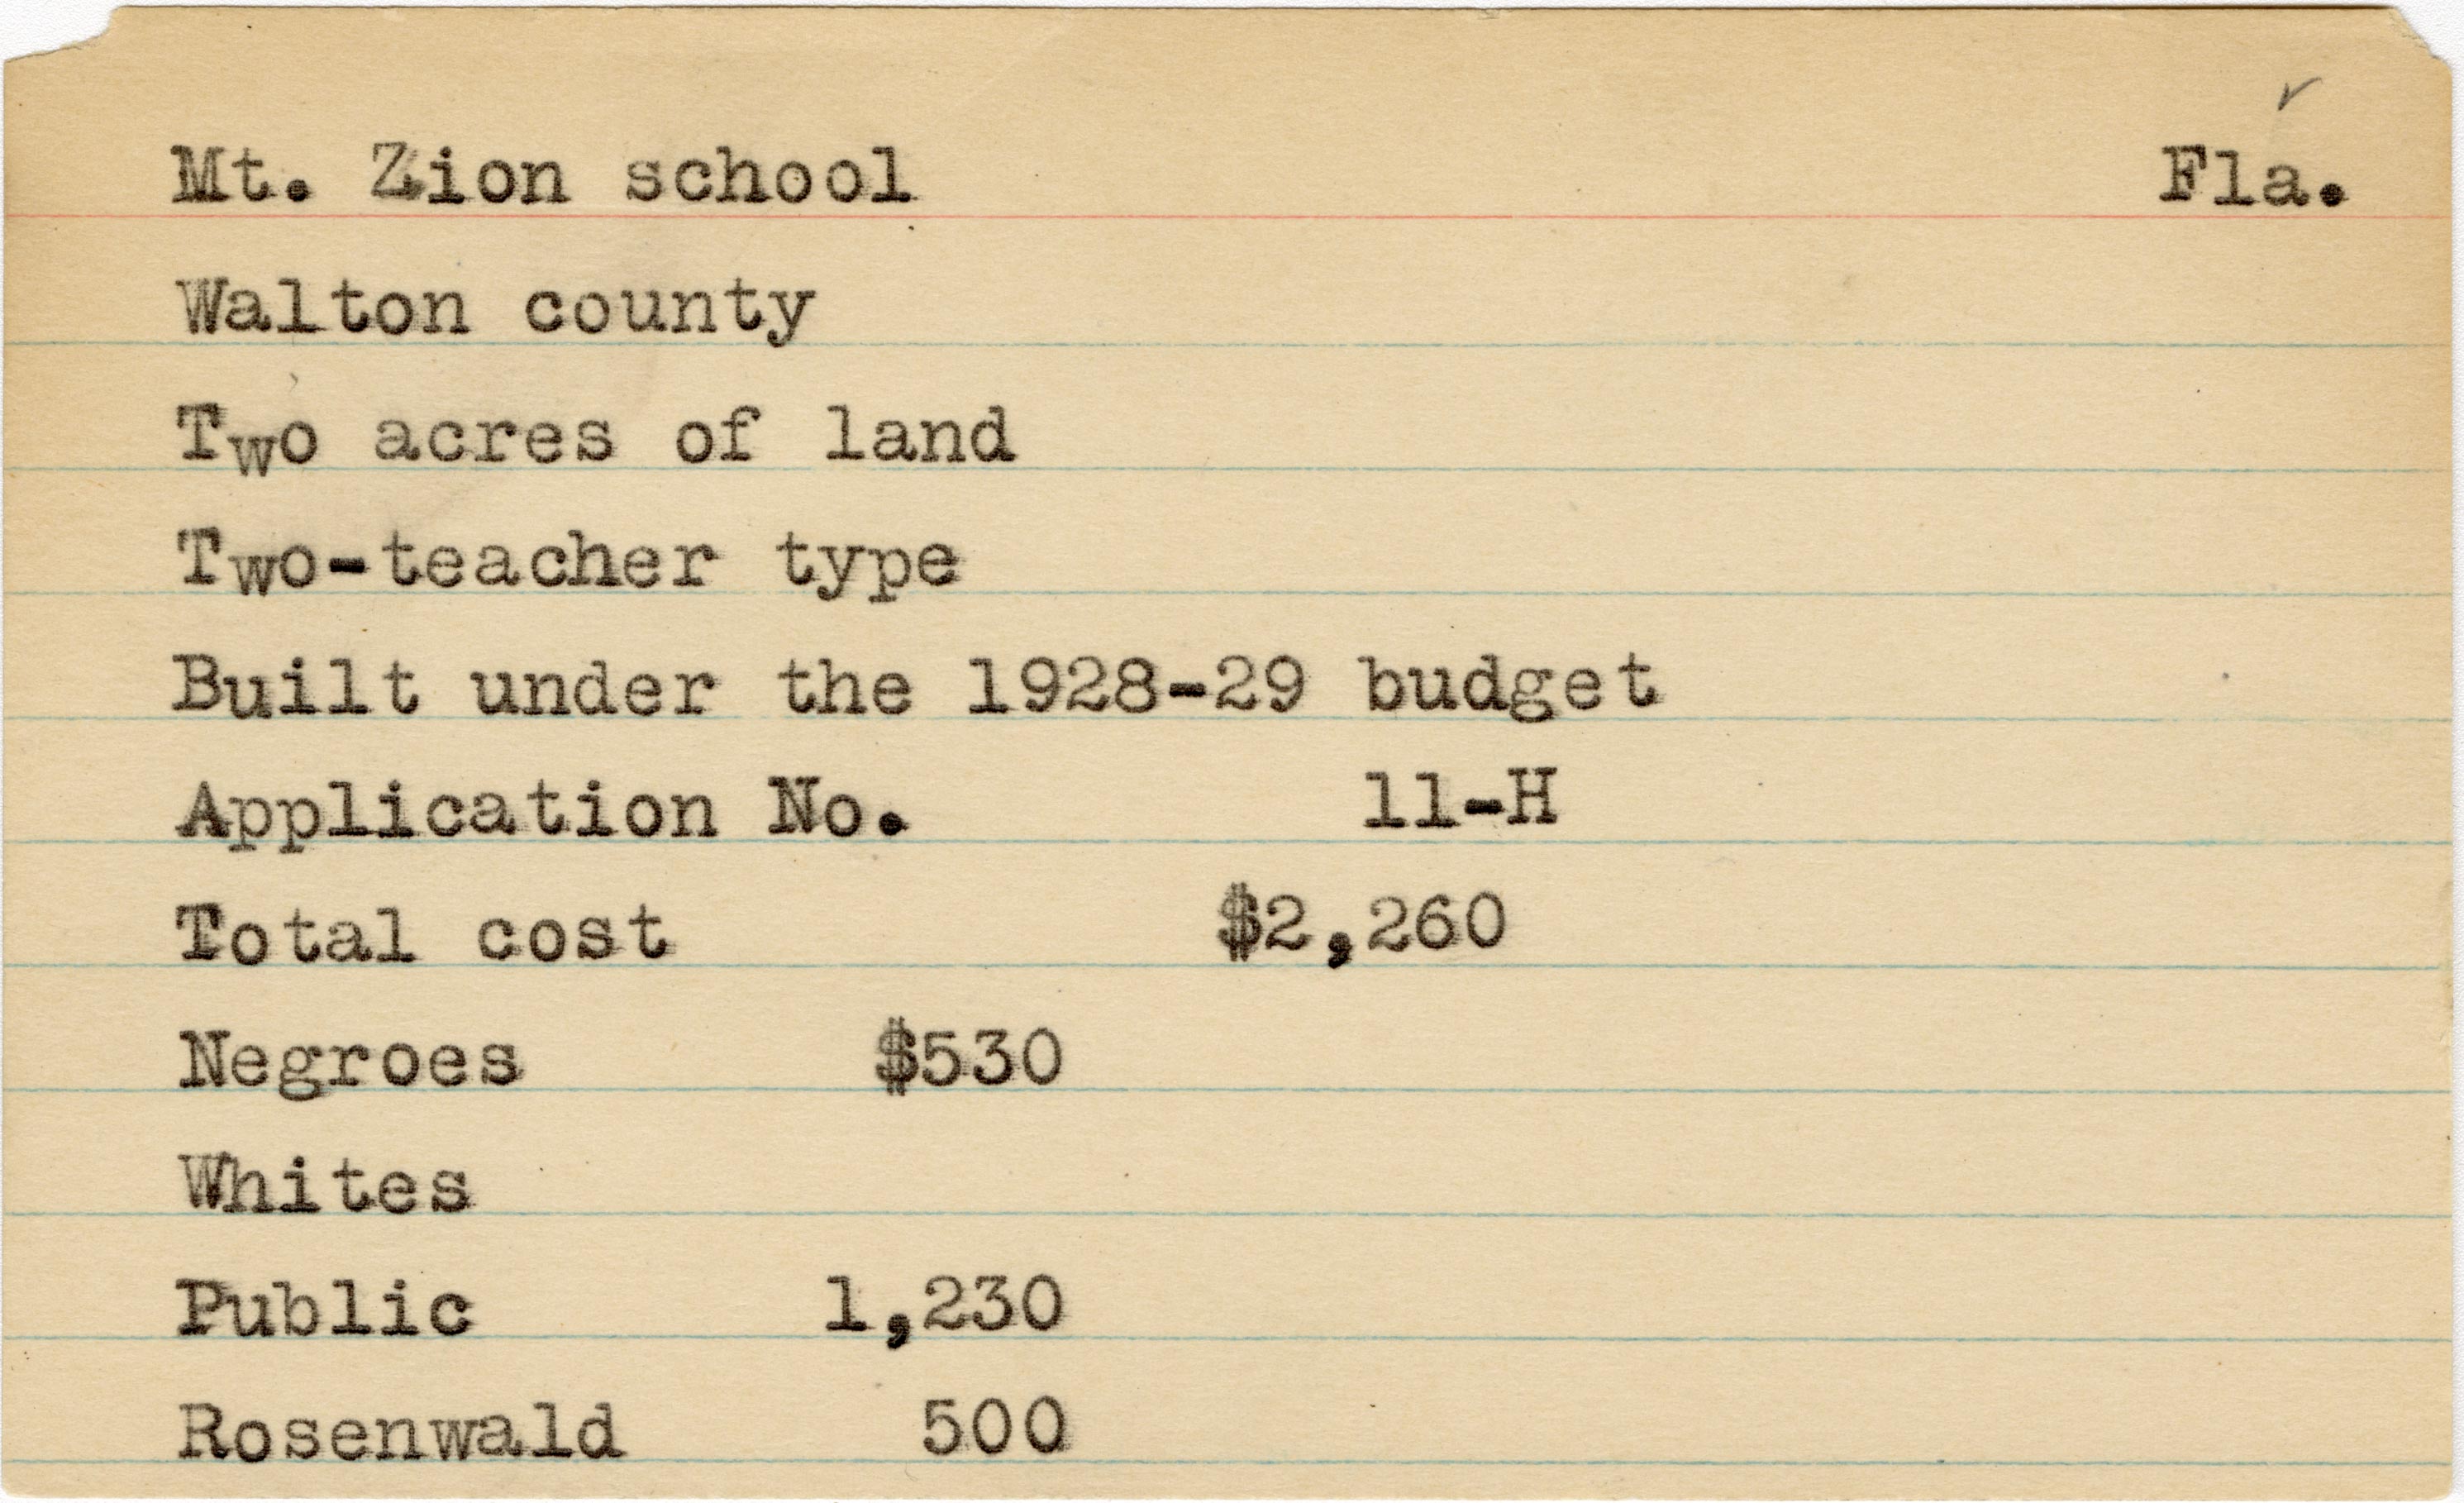 Mt. Zion school Fla.
Walton county
Two acres of land
Two-teacher type
Built under the 1928-29 budget
Application No. 11-H
Total cost $2,260
Negroes $530
Whites
Public 1,230
Rosenwald 500